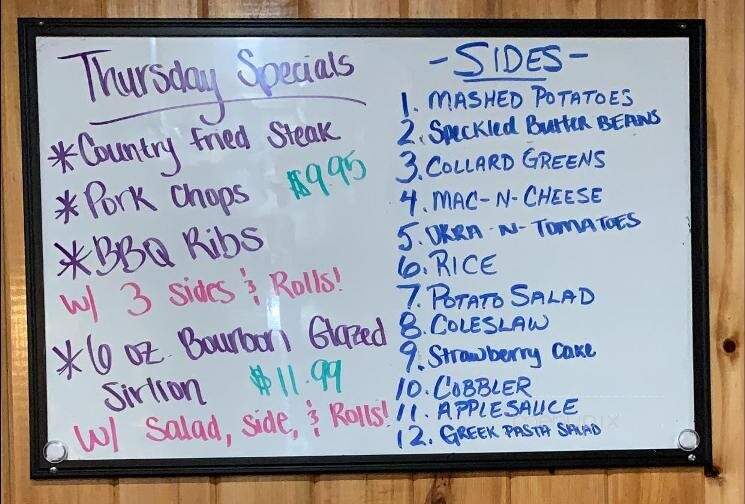 Thursday Specials
*Country fried Steak
*Pork Chops $9.95
*BBQ Ribs
w/ 3 sides & Rolls!
*6 oz. Bourbon Glazed
Sirlion $11.99
w/ Salad, side, & Rolls!
- SIDES -
1. MASHED POTATOES
2. Speckled Butter BEANS
3. COLLARD GREENS
4. MAC-N-CHEESE
5. OKRA-N-TOMATOES
6. RICE
7. POTATO SALAD
8. COLESLAW
9. Strawberry Cake
10. COBBLER
11. APPLESAUCE
12. GREEK PASTA SALAD